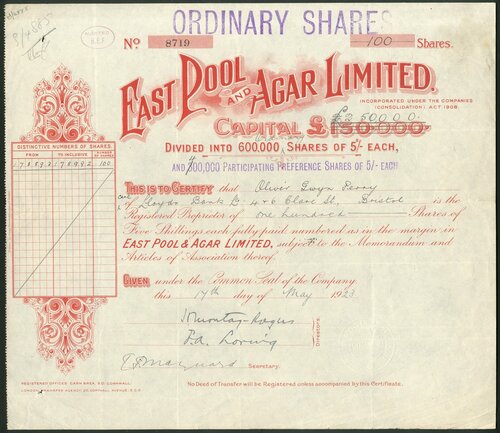 ORDINARY SHARES
No 8719
100 Shares.
EAST POOL AND AGAR LIMITED.
INCORPORATED UNDER THE COMPANIES
(CONSOLIDATION) ACT 1908.
£250000.
CAPITAL £150,000
DIVIDED INTO 600,000 SHARES OF 5/- EACH,
AND 400,000 PARTICIPATING PREFERENCE SHARES OF 5/- EACH
DISTINCTIVE NUMBERS OF SHARES.
FROM TO INCLUSIVE No
178893 178992 100
THIS IS TO CERTIFY that Olivir Gwyn Perry
of Lloyds Bank Ld 4 & 6 Clare St. Bristol is the
Registered Proprietor of one hundred Shares of
Five Shillings each, fully paid, numbered as in the margin in
EAST POOL & AGAR LIMITED, subject to the Memorandum and
Articles of Association thereof.
GIVEN under the Common Seal of the Company
this 17th day of May 1923
Directors.
Secretary.
REGISTERED OFFICES: CARN BREA, S.O. CORNWALL.
LONDON TRANSFER AGENCY: 20, COPTHALL AVENUE, E.C.2.
No Deed of Transfer will be Registered unless accompanied by this Certificate.